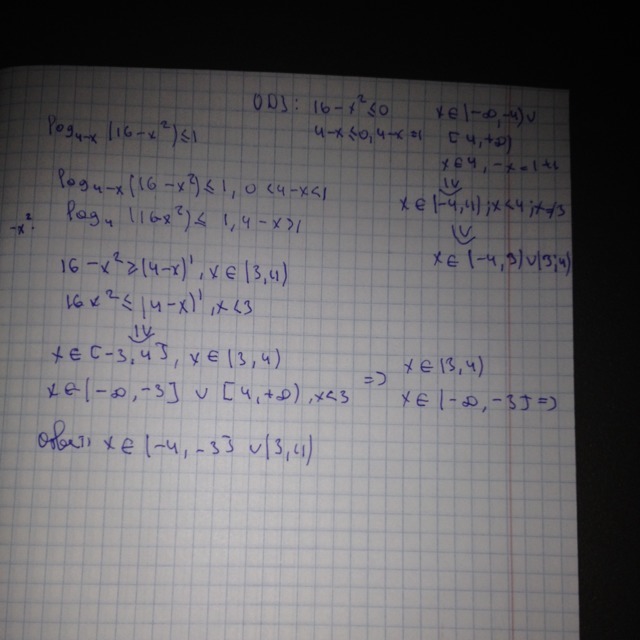 ОДЗ: 16-x² ≤ 0
4-x ≤ 0, 4-x = 1
x ∈ (-∞, -4) ∪
[4, +∞)
x ∈ 4, -x = 1-4
x ∈ (-4, 4); x < 4; x ≠ 3
x ∈ (-4, 3) ∪ (3, 4)
log₄₋ₓ (16-x²) ≤ 1
log₄₋ₓ (16-x²) ≤ 1, 0 < 4-x < 1
-x²:
log₄ (16x²) ≤ 1, 4-x > 1
16-x² ≥ (4-x)¹, x ∈ (3, 4)
16x² ≤ (4-x)¹, x < 3
x ∈ [-3, 4], x ∈ (3, 4)
x ∈ (-∞, -3] ∪ [4, +∞), x < 3
=> x ∈ (3, 4)
x ∈ (-∞, -3] =>
Ответ: x ∈ (-4, -3] ∪ (3, 4)